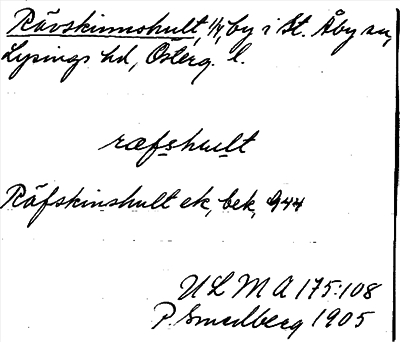 Rävskinnshult, 1/4, by i St. Åby sn,
Lysings hd, Österg. l.
ræfshult
Räfskinshult ek, bek, 944
ULMA 175:108
P. Smedberg 1905